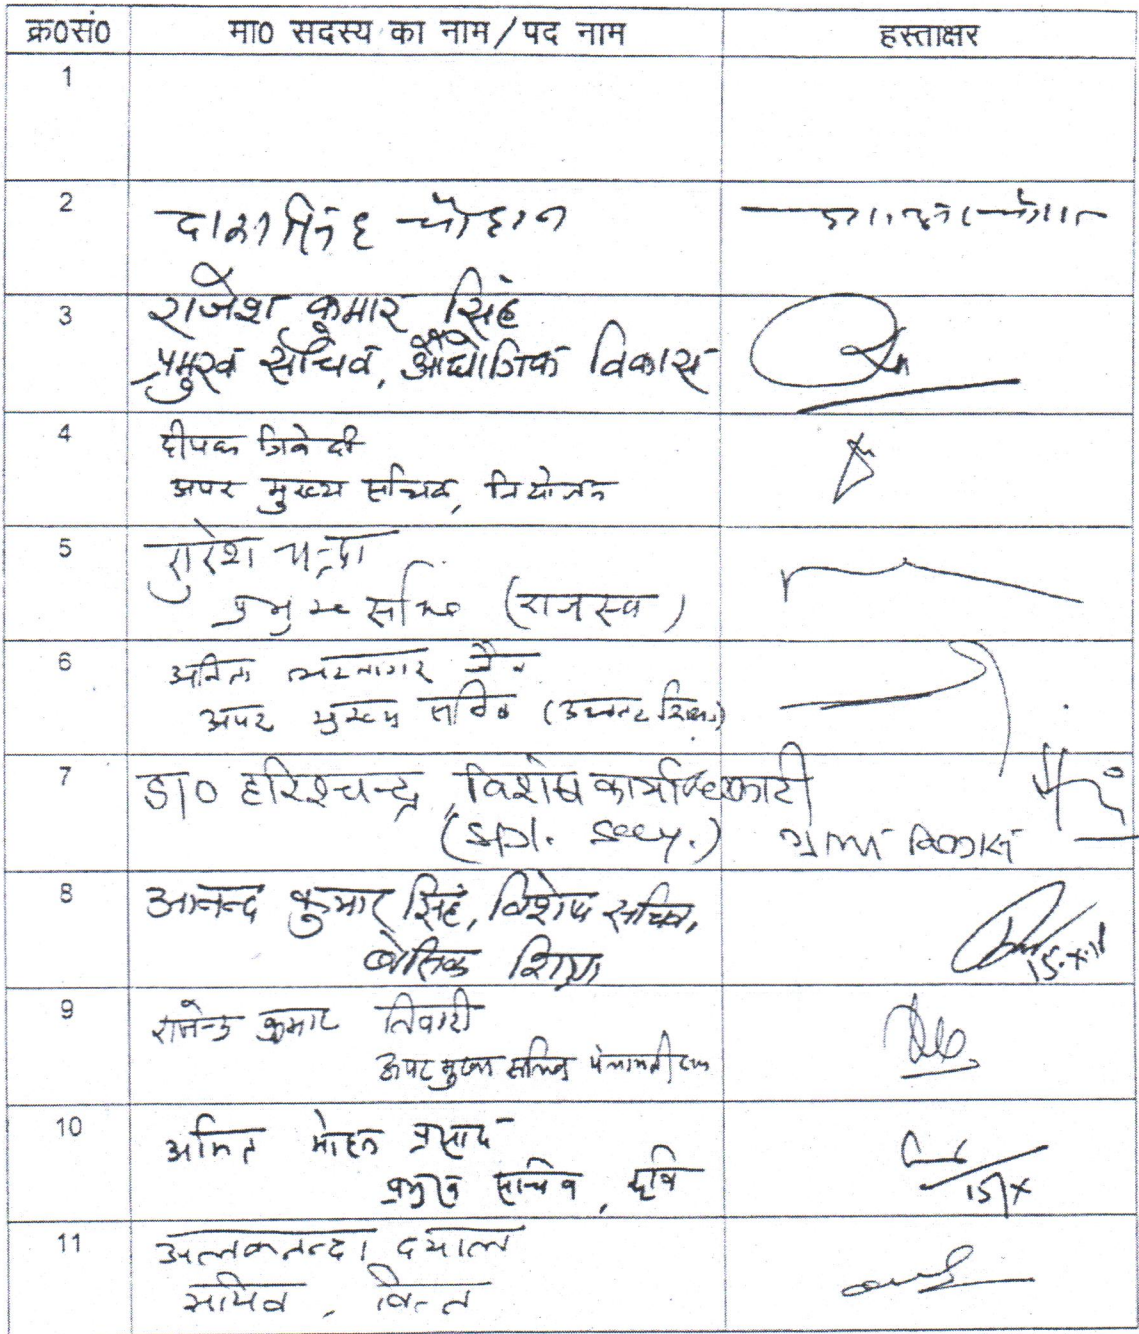 क्र0सं0 मा0 सदस्य का नाम/पद नाम हस्ताक्षर
1
2 दारा सिंह चौहान
3 राजेश कुमार सिंह
प्रमुख सचिव, औद्योगिक विकास
4 दीपक त्रिवेदी
अपर मुख्य सचिव, नियोजन
5 सुरेश चन्द्रा
प्रमुख सचिव (राजस्व)
6 अनिता भटनागर जैन
अपर मुख्य सचिव
7 डा0 हरिश्चन्द्र, विशेष कार्याधिकारी
(Spl. Secy.) ग्राम्य विकास
8 आनन्द कुमार सिंह, विशेष सचिव,
बेसिक शिक्षा
15.X.18
9 राजेन्द्र कुमार तिवारी
अपर मुख्य सचिव पंचायती राज
10 अमित मोहन प्रसाद
प्रमुख सचिव, कृषि
15/X
11 अलकनन्दा दयाल
सचिव, वित्त